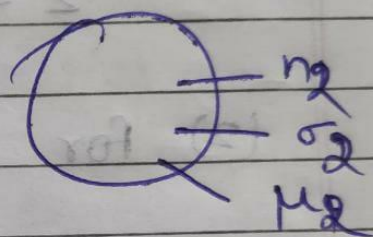 n₂
σ₂
μ₂